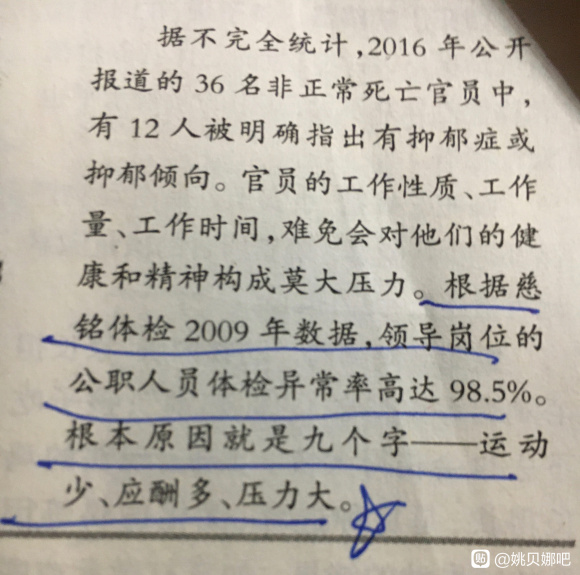 据不完全统计,2016 年公开
报道的 36 名非正常死亡官员中,
有 12 人被明确指出有抑郁症或
抑郁倾向。官员的工作性质、工作
量、工作时间,难免会对他们的健
康和精神构成莫大压力。根据慈
铭体检 2009 年数据,领导岗位的
公职人员体检异常率高达 98.5%。
根本原因就是九个字——运动
少、应酬多、压力大。
贴 @姚贝娜吧